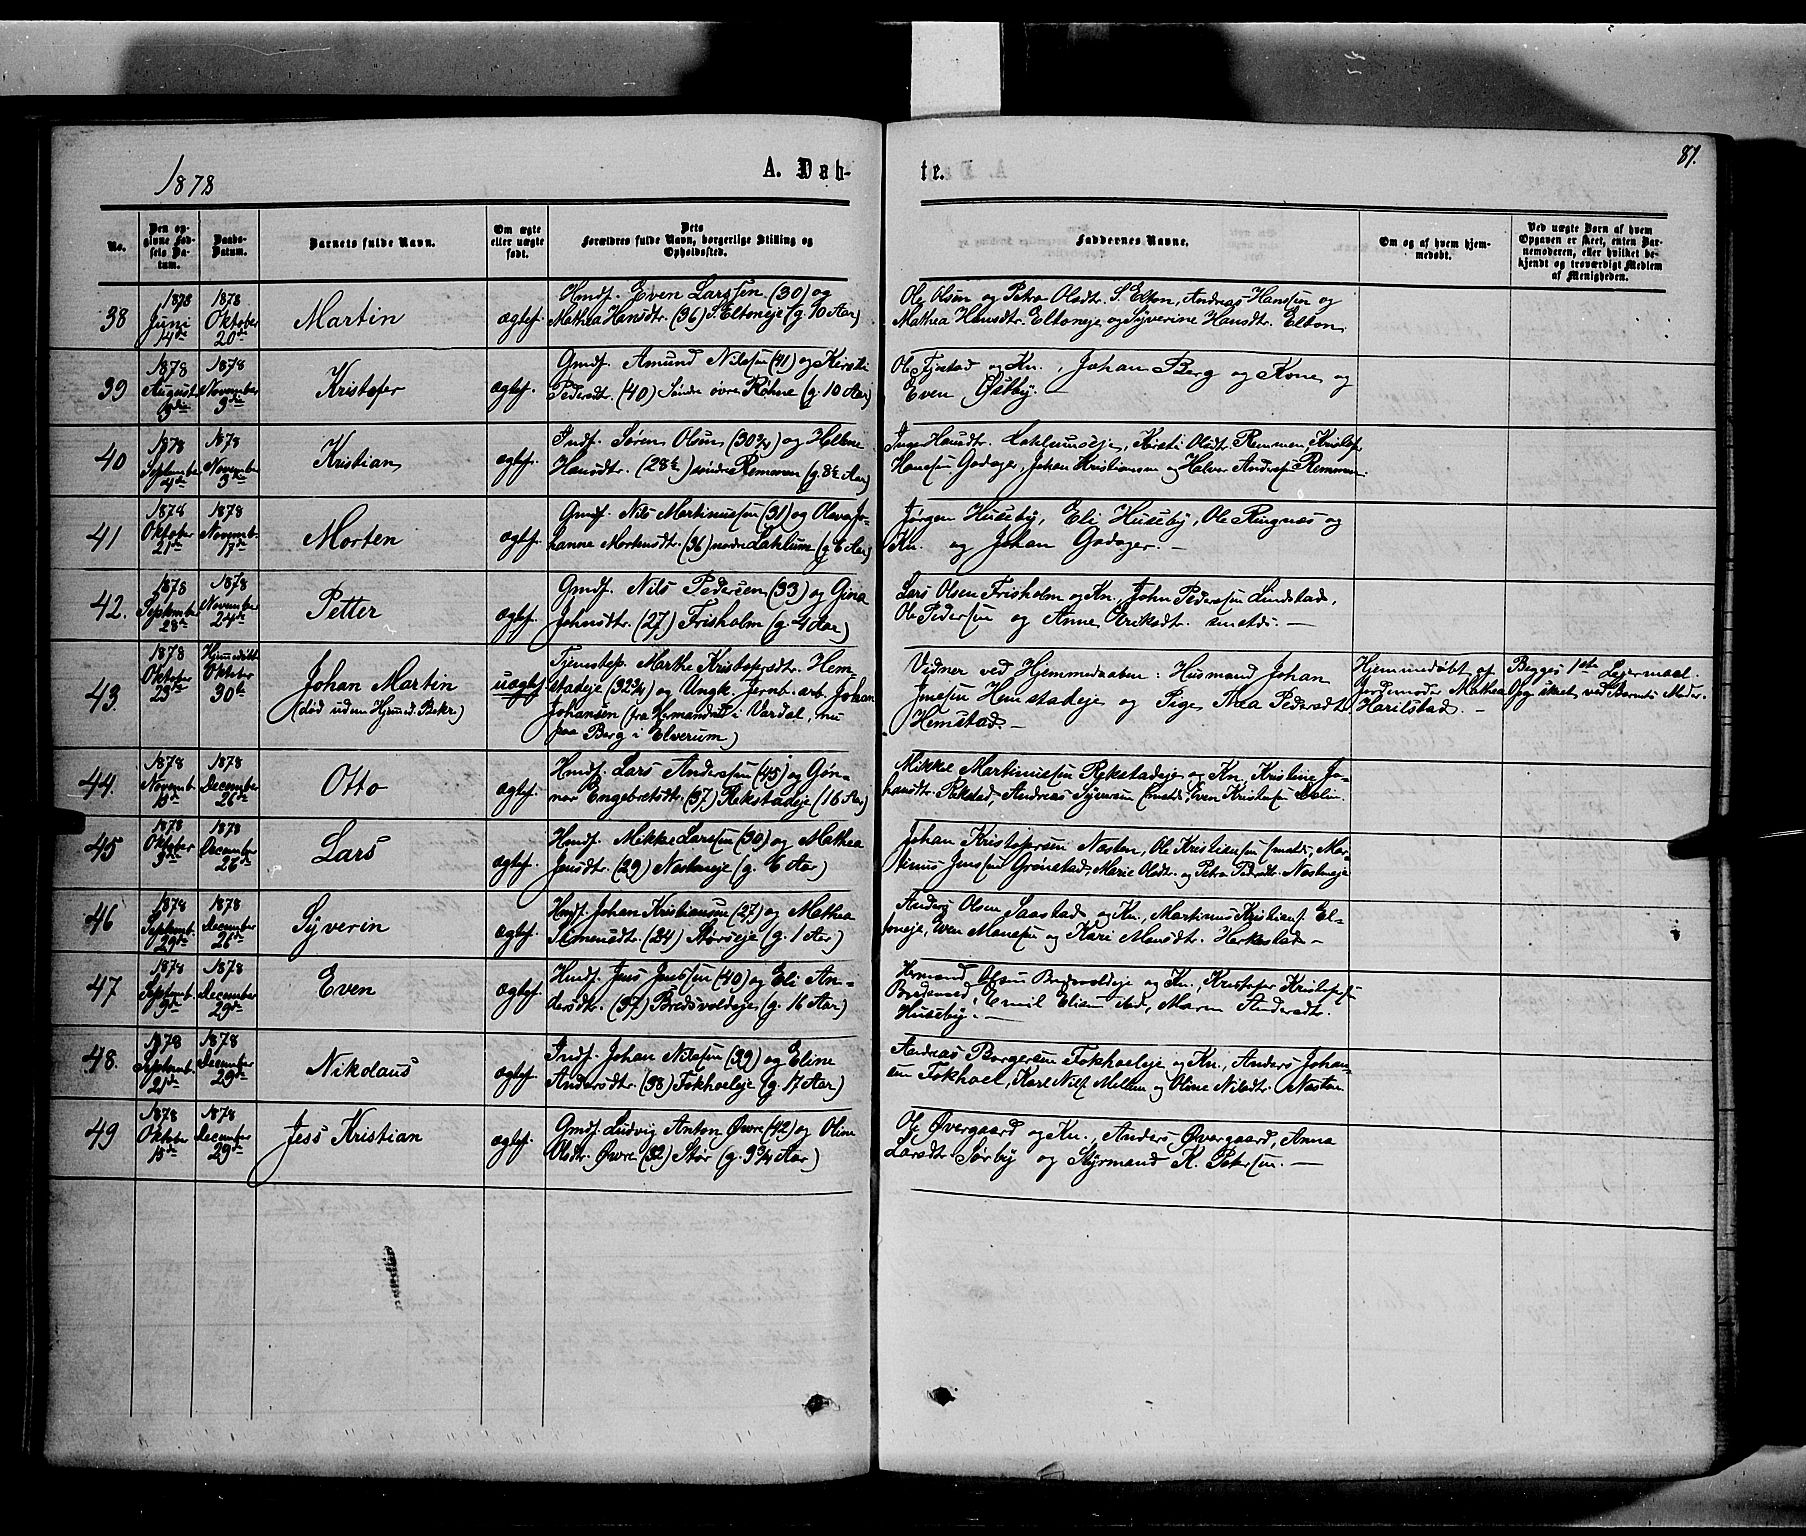 1878
A. Døb-
te.
81.
No.
Den op-
givne Fød-
sels Da-
tum.
Daabs-
Datum.
Barnets fulde Navn.
Om ægte
eller uægte
født.
Dets
Forældres fulde Navn, borgerlige Stilling og
Opholdssted.
Faddernes Navne.
Om og af hvem hjem-
medøbt.
Ved uægte Børn af hvem
Opgaven er skeet, enten Bar-
nemoderen, eller hvilket be-
kjendt og troværdigt Medlem
af Menigheden.
38
1878
Juni
14de
1878
Oktober
20de
Martin
ægtef.
Hmdf. Even Larssen (30) og
Mathea Hansdtr. (36) S. Eltoneje (g. 10 Aar)
Ole Olsen og Petra Olsdt. S. Elton, Andreas Hanssen og
Mathea Hansdtr. Eltoneje og Syverine Hansdtr. Elton
39
1878
August
1878
November
3die
Kristofer
ægtef.
Gmdf. Amund Nilssen (41) og Kersti
Pedersdtr. (40) Søndre øvre Røhne (g. 10 Aar)
Ole Fjestad og Kn., Johan Berg og Kone og
Even Østby. —
40
1878
September
4de
1878
November
3die
Kristian
ægtef.
Indf. Søren Olsen (30¾) og Helene
Hansdtr. (28½) søndre Remmen (g. 8½ Aar)
Hansdtr. Lahlumseje, Kirsti Olsdt. Remmen, Kristofer
Hansen Godager, Johan Kristiansen og Halvor Andersen Remmen
41
1878
Oktober
21de
1878
Novemb.
17de
Morten
ægtef.
Gmdf. Nils Martiniussen (31) og Olava Jo-
hanne Mortensdt. (36) nordre Lahlum (g. 6 Aar)
Jørgen Huseby, Eli Huseby, Ole Ringnæs og
Kn. og Johan Godager. —
42.
1878
September
28de
1878
November
24de
Petter
ægtef.
Gmdf. Nils Pedersen (33) og Gina
Johnsdtr. (27) Frisholm (g. 4 Aar)
Lars Olsen Frisholm og Kn., John Pedersen Lindstad,
Ole Pedersen og Anne Eriksdtr. smstds. —
43.
1878
Oktober
23de
Hjemmedøbt
Oktober
30te
Johan Martin
(død uden Hjemmed. Bekr.)
uægtef.
Tjenestep. Marthe Kristofersdtr. Hem-
stadeje (32¾) og Ungk. Jernb. arb. Johan
Johansen (fra i Vardal, nu
paa Berg i Elverum)
Vidner ved Hjemmedaaben: Husmand Johan
Jensen Hemstadeje og Pige Thea Pedersdt.
Hemstad. —
Hjemmedøbt af
Jordemoder Mathea
Harilstad. —
Begges 1ste Lejermaal.
Opg. skeet ved Barnets Moder.
44.
1878
Novemb.
1878
December
26de
Otto
ægtef.
Hmdf. Lars Anderssen (45) og Gøn-
nor Engebretsdt. (37) Rekstadeje (16 Aar)
Mikkel Martiniussen Rekstadeje og Kn, Kristine Jo-
hansdtr. Rekstad, Andreas Syversen smstds, Even Kristofersen Dalin.
45
1878
Oktober
3die
1878
December
26de
Lars
ægtef.
Hmdf. Mikkel Larssen (30) og Mathea
Jensdtr. (29) Nesteneje (g. 6 Aar)
Johan Kristofersen Næsten, Ole Kristiansen smstds, Mar-
tinus Jenssen Grønstad, Marie Olsdtr. og Petra Pedersdt. Næsteneje
46
1878
Septemb.
29de
1878
December
26de
Syverin
ægtef.
Hmdf. Johan Kristiansen (27) og Mathea
Simensdtr. (24) Størseje (g. 1 Aar)
Anders Olsen Saastad og Kn., Martinus Kristians. El-
toneje, Even Monssen og Kari Monsdtr. Herkestad —
47
1878
Septemb.
9de
1878
December
29de
Even
ægtef.
Hmdf. Jens Jenssen (40) og Eli An-
dersdtr. (37) Bredsvoldeje (g. 16 Aar)
Hermand Olsen Bredsvoldeje og Kn., Kristofer Kristofersen
Bredsvold, Emil Eliassen ibd, Maren Andersdtr.
Huseby. —
48.
1878
Septemb.
21de
1878
December
29de
Nikolaus
ægtef.
Indf. Johan Nilssen (39) og Eline
Andersdtr. (38) Fokholeje (g. 17 Aar)
Andreas Borgersen Fokholeje og Kn., Anders Johan-
sen Fokhoel, Karl Nils. Mellum og Oline Nilsdtr. Næsten
49
1878
Oktober
15de
1878
December
29de
Jess Kristian
ægtef.
Gmdf. Ludvig Anton Øvre (42) og Oline
Olsdtr. Øvre (32) Stør (g. 9¾ Aar)
Ole Øvergaard og Kn., Anders Øvergaard, Anna
Larsdtr. Sørby og Styrmand K. Petersen. —